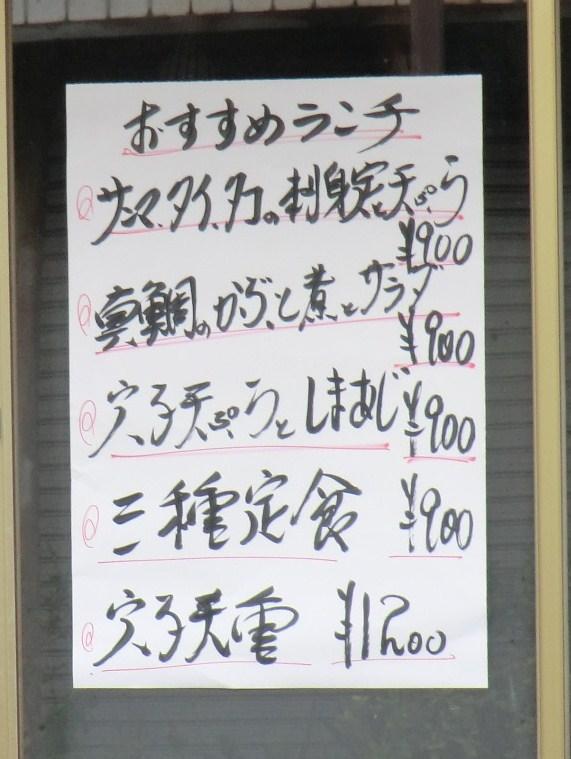 おすすめランチ
サンマ、タイ、タコの刺身定と天ぷら
¥900
真鯛のかぶと煮とサラダ
¥900
穴子天ぷらとしまあじ ¥900
三種定食 ¥900
穴子天重 ¥1200